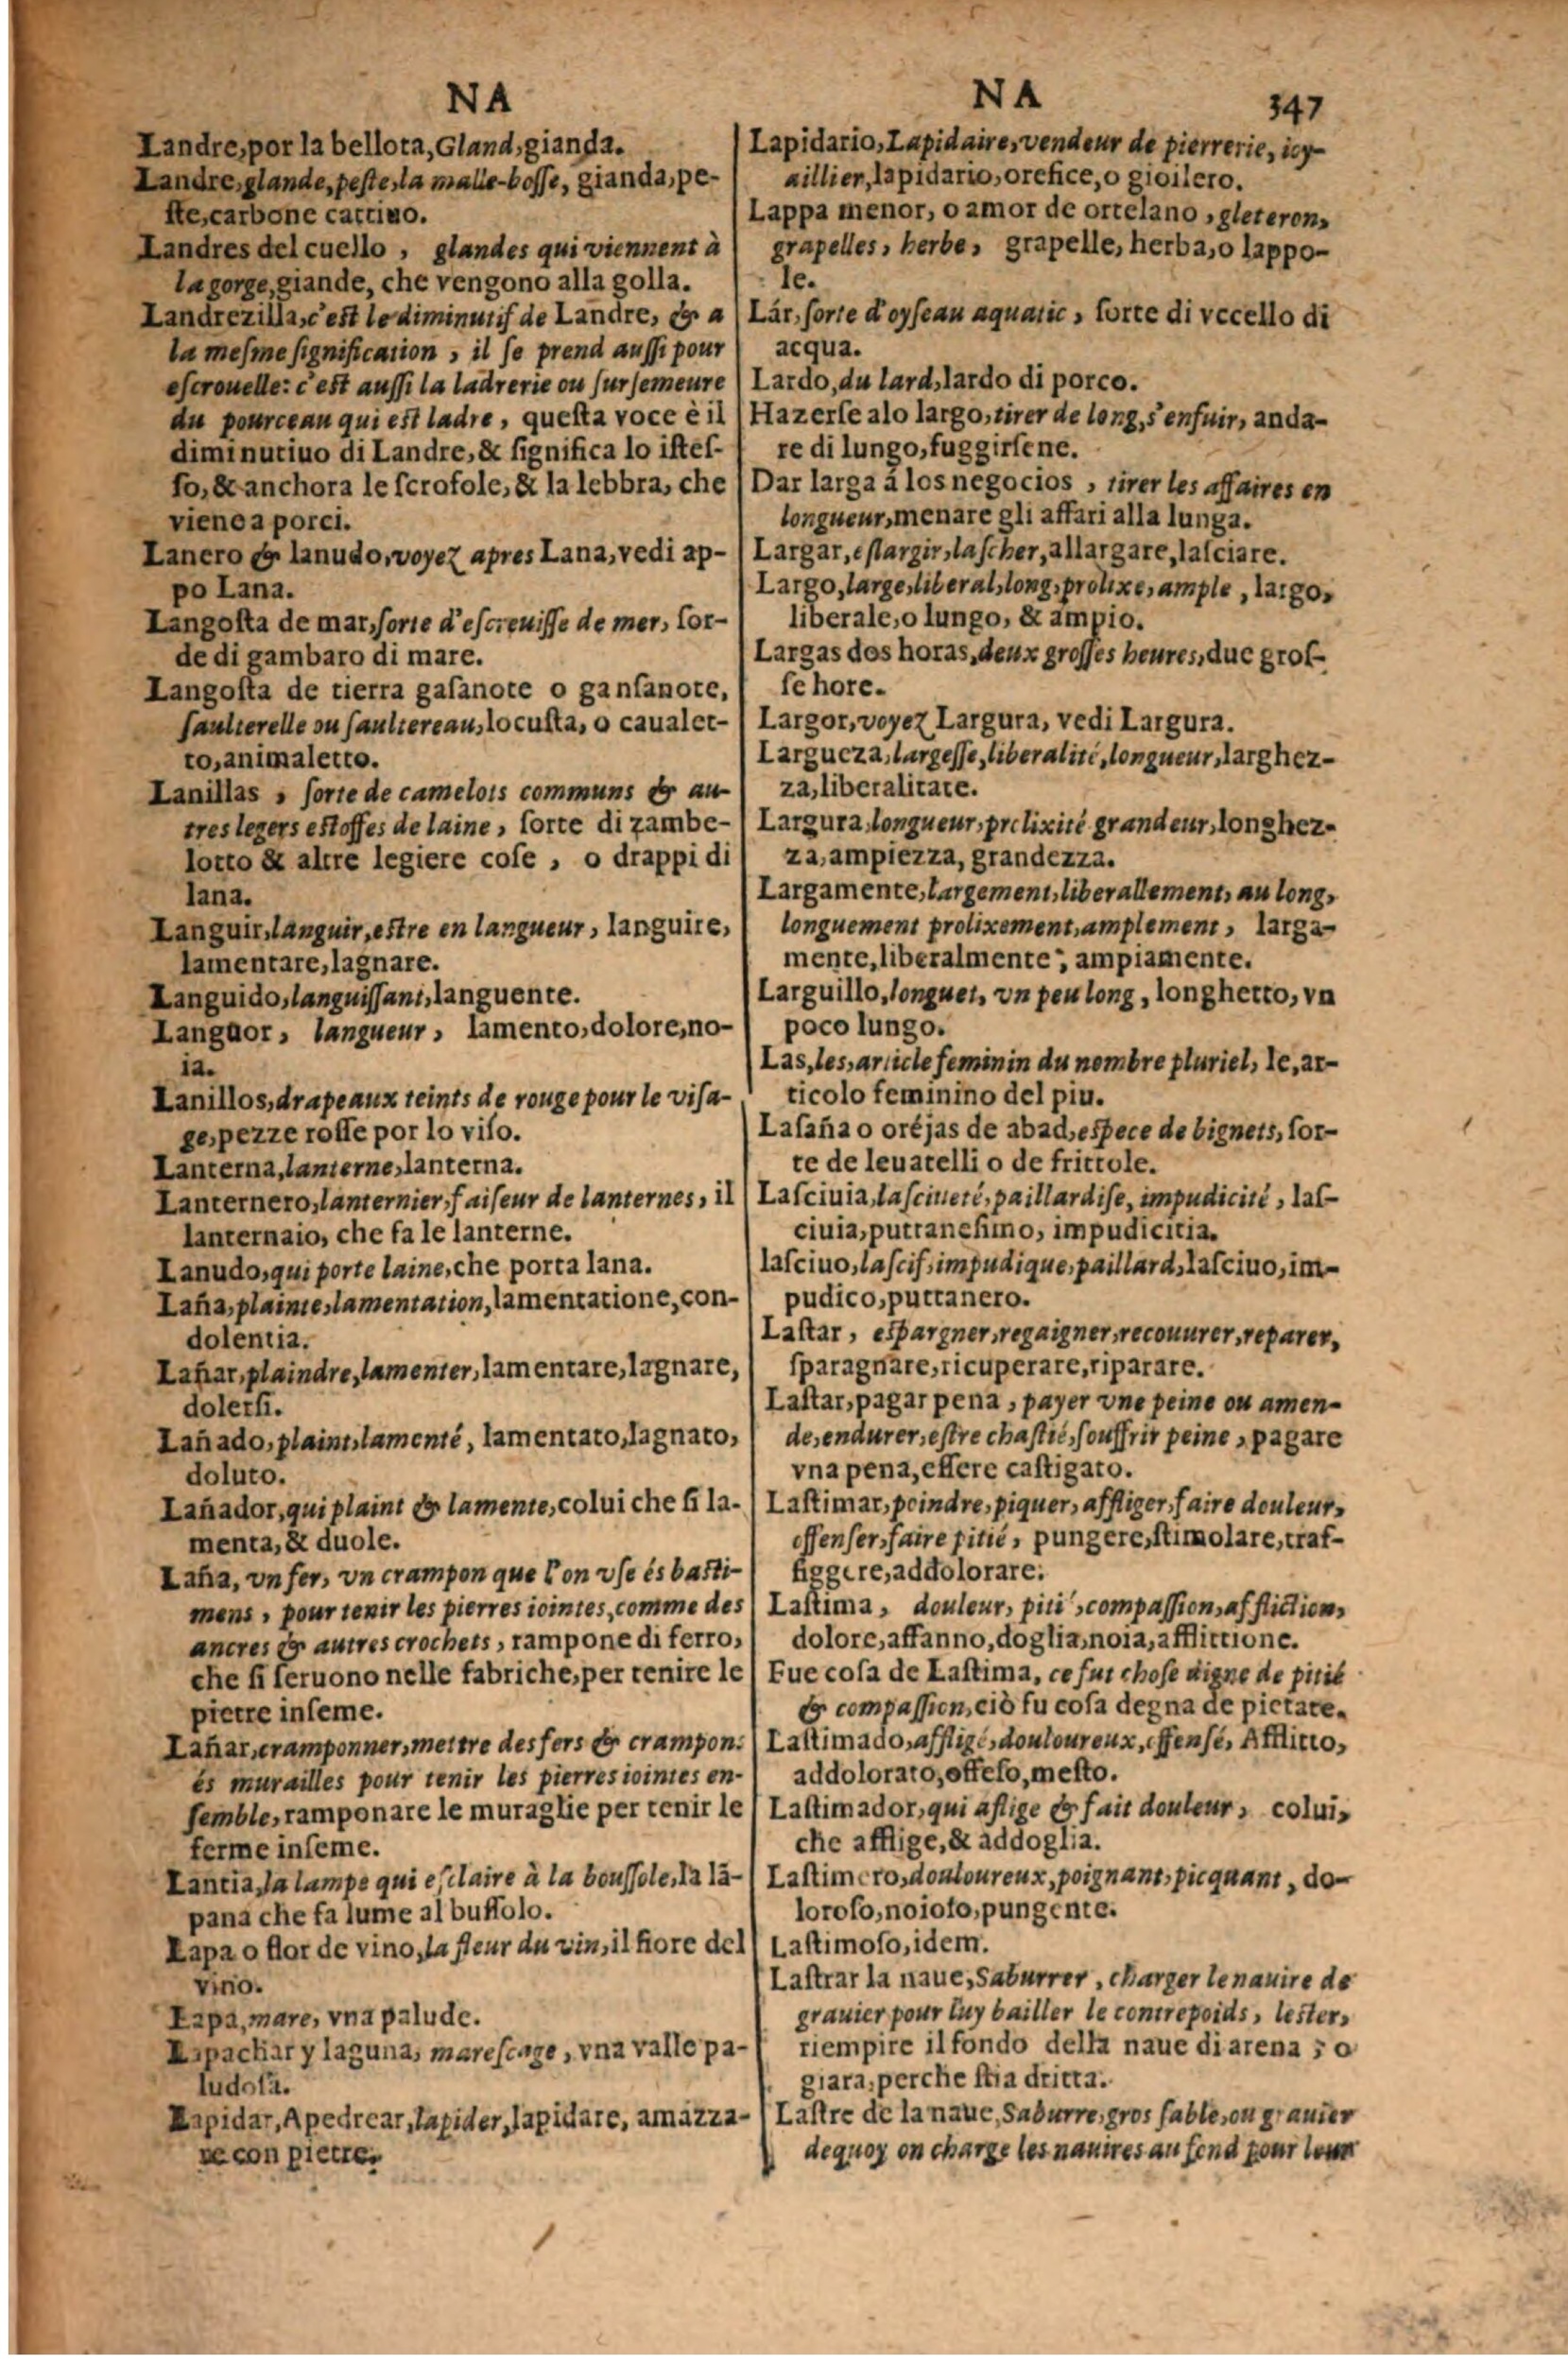 NA
Landre, por la bellota, Gland, gianda.
Landre, glande, peste, la malle-bosse, gianda, pe-
ste, carbone cattiuo.
Landres del cuello , glandes qui viennent à
la gorge, giande, che vengono alla golla.
Landrezilla, c'est le diminutif de Landre, & a
la mesme signification , il se prend aussi pour
escrouelle: c'est aussi la ladrerie ou sursemeure
du pourceau qui est ladre , questa voce è il
diminutiuo di Landre, & significa lo istes-
so, & anchora le scrofole, & la lebbra, che
viene a porci.
Lanero & lanudo, voyez apres Lana, vedi ap-
po Lana.
Langosta de mar, sorte d'escreuisse de mer, sor-
de di gambaro di mare.
Langosta de tierra gasanote o gansanote,
saulterelle ou saultereau, locusta, o caualet-
to, animaletto.
Lanillas , sorte de camelots communs & au-
tres legers estoffes de laine , sorte di zambe-
lotto & altre legiere cose , o drappi di
lana.
Languir, languir, estre en langueur , languire,
lamentare, lagnare.
Languido, languissant, languente.
Languor , langueur , lamento, dolore, no-
ia.
Lanillos, drapeaux teints de rouge pour le visa-
ge, pezze rosse por lo viso.
Lanterna, lanterne, lanterna.
Lanternero, lanternier, faiseur de lanternes, il
lanternaio, che fa le lanterne.
Lanudo, qui porte laine, che porta lana.
Laña, plainte, lamentation, lamentatione, con-
dolentia.
Lañar, plaindre, lamenter, lamentare, lagnare,
dolersi.
Lañado, plaint, lamenté, lamentato, lagnato,
doluto.
Lañador, qui plaint & lamente, colui che si la-
menta, & duole.
Laña, vn fer, vn crampon que l'on vse és basti-
mens , pour tenir les pierres iointes, comme des
ancres & autres crochets , rampone di ferro,
che si seruono nelle fabriche, per tenire le
pietre inseme.
Lañar, cramponner, mettre des fers & crampons
és murailles pour tenir les pierres iointes en-
semble, ramponare le muraglie per tenir le
ferme inseme.
Lantia, la lampe qui esclaire à la boussole, la lã-
pana che fa lume al bussolo.
Lapa o flor de vino, la fleur du vin, il fiore del
vino.
Lapa, mare, vna palude.
Lapachar y laguna, marescage, vna valle pa-
ludosa.
Lapidar, Apedrear, lapider, lapidare, amazza-
re con pietre.
NA 347
Lapidario, Lapidaire, vendeur de pierrerie, ioy-
aillier, lapidario, orefice, o gioilero.
Lappa menor, o amor de ortelano , gleteron,
grapelles, herbe, grapelle, herba, o lappo-
le.
Lár, sorte d'oyseau aquatic , sorte di vccello di
acqua.
Lardo, du lard, lardo di porco.
Hazerse alo largo, tirer de long, s'enfuir, anda-
re di lungo, fuggirsene.
Dar larga á los negocios , tirer les affaires en
longueur, menare gli affari alla lunga.
Largar, eslargir, lascher, allargare, lasciare.
Largo, large, liberal, long, prolixe, ample , largo,
liberale, o lungo, & ampio.
Largas dos horas, deux grosses heures, due gros-
se hore.
Largor, voyez Largura, vedi Largura.
Largueza, largesse, liberalité, longueur, larghez-
za, liberalitate.
Largura, longueur, prolixité grandeur, longhez-
za, ampiezza, grandezza.
Largamente, largement, liberallement, au long,
longuement prolixement, amplement , larga-
mente, liberalmente, ampiamente.
Larguillo, longuet, vn peu long , longhetto, vn
poco lungo.
Las, les, article feminin du nombre pluriel, le, ar-
ticolo feminino del piu.
Lasaña o oréjas de abad, espece de bignets, sor-
te de leuatelli o de frittole.
Lasciuia, lasciueté, paillardise, impudicité , las-
ciuia, puttanesimo, impudicitia.
lasciuo, lascif, impudique, paillard, lasciuo, im-
pudico, puttanero.
Lastar , espargner, regaigner, recouurer, reparer,
sparagnare, ricuperare, riparare.
Lastar, pagar pena , payer vne peine ou amen-
de, endurer, estre chastié, souffrir peine , pagare
vna pena, essere castigato.
Lastimar, poindre, piquer, affliger, faire douleur,
offenser, faire pitié, pungere, stimolare, traf-
figgere, addolorare.
Lastima , douleur, pitié, compassion, affliction,
dolore, affanno, doglia, noia, afflittione.
Fue cosa de Lastima, ce fut chose digne de pitié
& compassion, ciò fu cosa degna de pietate.
Lastimado, affligé, douloureux, offensé, Afflitto,
addolorato, offeso, mesto.
Lastimador, qui aflige & fait douleur , colui,
che afflige, & addoglia.
Lastimero, douloureux, poignant, picquant , do-
loroso, noioso, pungente.
Lastimoso, idem.
Lastrar la naue, Saburrer , charger le nauire de
grauier pour luy bailler le contrepoids , lester,
riempire il fondo della naue di arena ; o
giara, perche stia dritta.
Lastre de la naue, Saburre, gros sable, ou grauier
dequoy on charge les nauires au fond pour leur